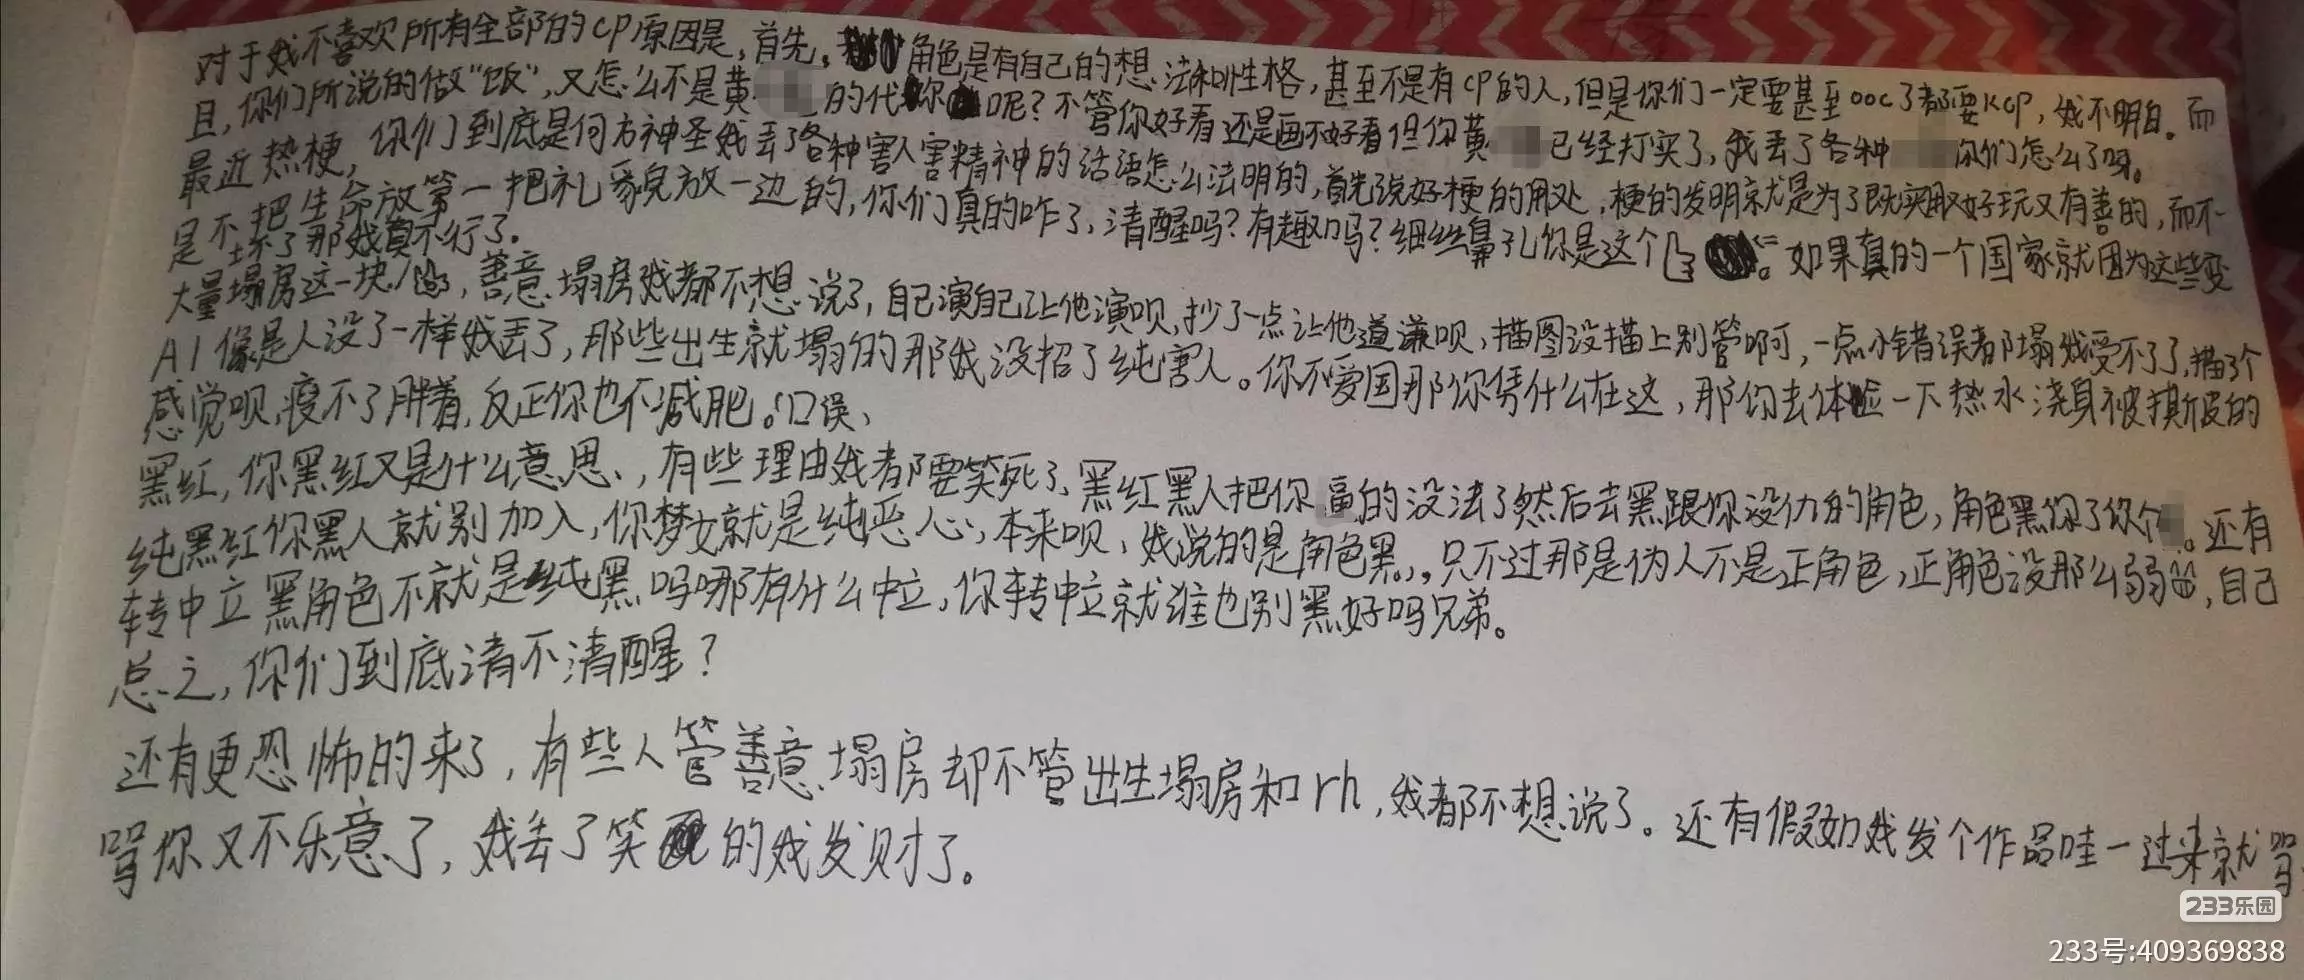 对于我不喜欢所有全部的cp原因是,首先,角色是有自己的想法和性格,甚至不是有cp的人,但是你们一定要甚至ooc了都要kcp,我不明白。而
且,你们所说的做"饭",又怎么不是黄的代你呢?不管你好看还是画不好看但你黄已经打实了,我丢了各种你们怎么了呀。
最近热梗,你们到底是何方神圣我丢了各种害人害精神的话语怎么法明的,首先说好梗的用处,梗的发明就是为了既实用又好玩又有善的,而不
是不把生命放第一把礼貌放一边的,你们真的咋了,清醒吗?有趣吗?细丝鼻孔你是这个。如果真的一个国家就因为这些变
坏了那我真不行了。
大量塌房这一块/,善意塌房我都不想说了,自己演自己让他演呗,抄了一点让他道谦呗,描图没描上别管啊,一点小错误都塌我受不了了,描了个
AI像是人没了一样我丢了,那些出生就塌的那我没招了纯害人。你不爱国那你凭什么在这,那你去体验一下热水浇身被摸皮的
感觉呗,瘦不了胖着,反正你也不减肥。(口误、
黑红,你黑红又是什么意思、,有些理由我都要笑死了、黑红黑人把你逼的没法了然后去黑跟你没仇的角色,角色黑你了你个。还有
纯黑红你黑人就别加入,你梦女就是纯恶心,本来呗、我说的是角色黑、,只不过那是伪人不是正角色,正角色没那么弱,自己
转中立黑角色不就是纯黑吗哪有什么中立,你转中立就谁也别黑好吗兄弟。
总之,你们到底清不清醒?
还有更恐怖的来了,有些人管善意塌房却不管出生塌房和rh,我都不想说了。还有假如我发个作品哇一过来就骂
骂你又不乐意了,我丢了笑的我发财了。
233乐园
233号:409369838